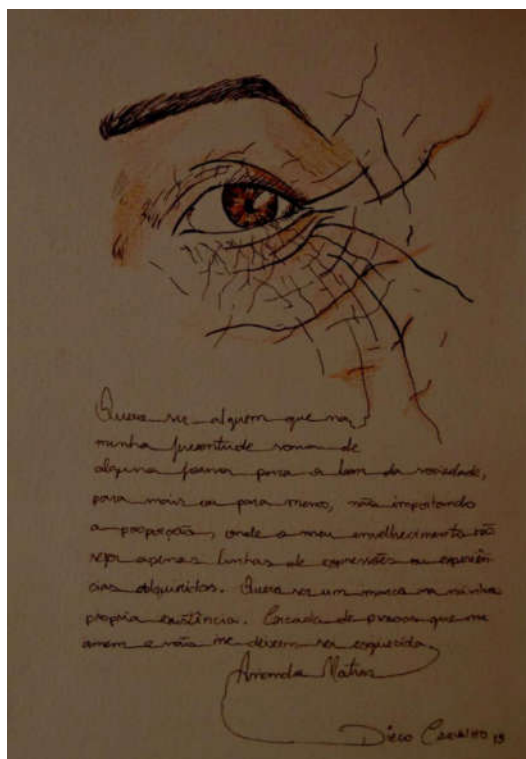 Quero ser alguém que na
minha juventude soma de
alguma forma para o bem da sociedade,
para mais ou para menos, não importando
a proporção, onde o meu envelhecimento não
seja apenas linhas de expressões ou experiên
cias adquiridas. Quero ser um marco na minha
propria existência. Cercada de pessoas que me
amem e não me deixem ser esquecida.
Amanda Matias
Diego Carvalho 19